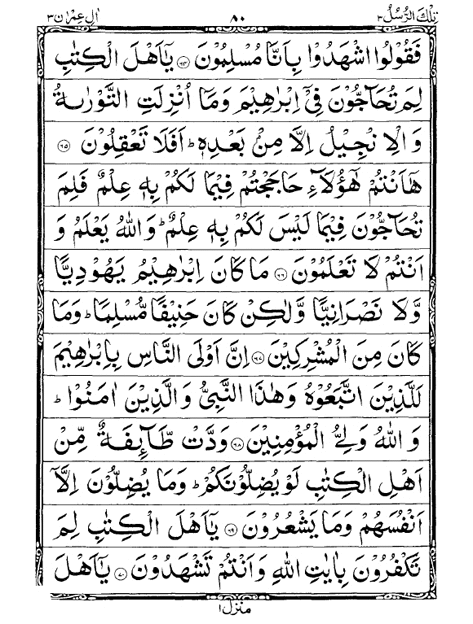 تلك الرسل ٣ ٨٠ اٰل عمران ٣
فَقُوْلُوا اشْهَدُوْا بِاَنَّا مُسْلِمُوْنَ ۝٦٤ يٰۤاَهْلَ الْكِتٰبِ
لِمَ تُحَآجُّوْنَ فِيْۤ اِبْرٰهِيْمَ وَمَاۤ اُنْزِلَتِ التَّوْرٰىةُ
وَ الْاِنْجِيْلُ اِلَّا مِنْۢ بَعْدِهٖ ؕ اَفَلَا تَعْقِلُوْنَ ۝٦٥
هٰۤاَنْتُمْ هٰۤؤُلَآءِ حَاجَجْتُمْ فِيْمَا لَكُمْ بِهٖ عِلْمٌ فَلِمَ
تُحَآجُّوْنَ فِيْمَا لَيْسَ لَكُمْ بِهٖ عِلْمٌ ؕ وَاللّٰهُ يَعْلَمُ وَ
اَنْتُمْ لَا تَعْلَمُوْنَ ۝٦٦ مَا كَانَ اِبْرٰهِيْمُ يَهُوْدِيًّا
وَّلَا نَصْرَانِيًّا وَّلٰكِنْ كَانَ حَنِيْفًا مُّسْلِمًا ؕ وَمَا
كَانَ مِنَ الْمُشْرِكِيْنَ ۝٦٧ اِنَّ اَوْلَى النَّاسِ بِاِبْرٰهِيْمَ
لَلَّذِيْنَ اتَّبَعُوْهُ وَهٰذَا النَّبِيُّ وَالَّذِيْنَ اٰمَنُوْا ؕ
وَ اللّٰهُ وَلِيُّ الْمُؤْمِنِيْنَ ۝٦٨ وَدَّتْ طَّآئِفَةٌ مِّنْ
اَهْلِ الْكِتٰبِ لَوْ يُضِلُّوْنَكُمْ ؕ وَمَا يُضِلُّوْنَ اِلَّاۤ
اَنْفُسَهُمْ وَمَا يَشْعُرُوْنَ ۝٦٩ يٰۤاَهْلَ الْكِتٰبِ لِمَ
تَكْفُرُوْنَ بِاٰيٰتِ اللّٰهِ وَاَنْتُمْ تَشْهَدُوْنَ ۝٧٠ يٰۤاَهْلَ
منزل ١